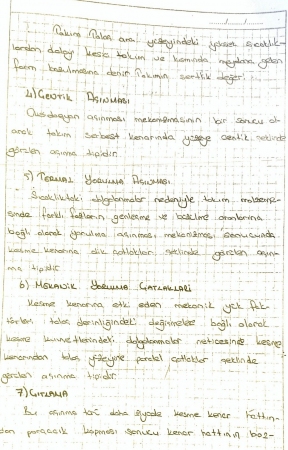 Takım Talaş ara yüzeyindeki yüksek sıcaklık-
lardan dolayı kesici takım ve kamında meydana gelen
form bozulmasına denir. Takımın sertlik değeri
4) ÇENTİK AŞINMASI
Oksidasyon aşınması mekanizmasının bir sonucu ol
arak takım serbest kenarında yüzeye çentik şeklinde
görülen aşınma tipidir.
5) TERMAL YORULMA AŞINMASI
Sıcaklıktaki dalgalanmalar nedeniyle takım malzeme-
sinde farklı fazların genleşme ve büzülme oranlarına
bağlı olarak yorulma aşınması mekanizması sonucunda
kesme kenarına dik çatlaklar şeklinde görülen aşın-
ma tipidir.
6) MEKANİK YORULMA ÇATLAKLARI
Kesme kenarına etki eden mekanik yük fak-
törleri talaş derinliğindeki değişmeler bağlı olarak
kesme kuvvetlerindeki dalgalanmalar neticesinde kesme
kenarından talaş yüzeyine paralel çatlaklar şeklinde
görülen aşınma tipidir.
7) ÇITLAMA
Bu aşınma türü daha ziyade kesme kenar hattın-
dan parçacık kopması sonucu kenar hattının boz-